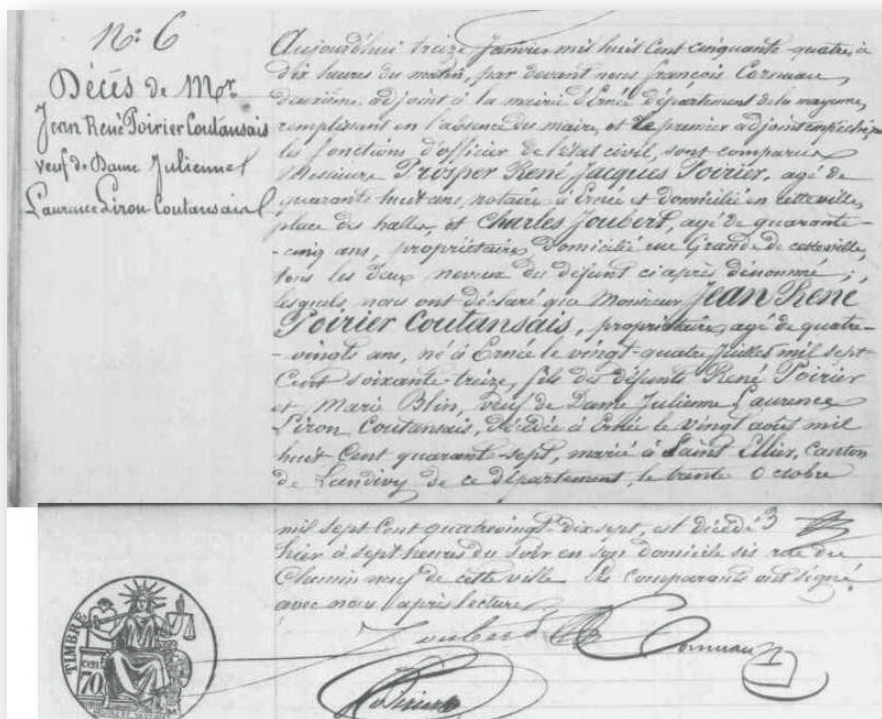 N.° 6
Décès de Mr.
Jean René Poirier Coutansais
veuf de Dame Julienne
Laurence Liron Coutansais
Aujourd'hui treize Janvier mil huit Cent cinquante-quatre, à
dix heures du matin, par devant nous françois Cornuau,
deuxième adjoint à la mairie d'Ernée département de la mayenne,
remplissant en l'absence des maire, et le premier adjoint empêchés,
les fonctions d'officier de l'état civil, sont comparus
Messieurs Prosper René Jacques Poirier, agé de
quarante huit ans, notaire à Ernée et domicilié en cette ville,
place des halles, et Charles Joubert, agé de quarante-
-cinq ans, propriétaire, domicilié rue Grande de cette ville,
tous les deux neveux du défunt ci après dénommé ;
lesquels nous ont déclaré que Monsieur Jean René
Poirier Coutansais, propriétaire, agé de quatre-
-vingts ans, né à Ernée le vingt-quatre Juillet mil sept
Cent soixante-treize, fils des défunts René Poirier
et Marie Blin, veuf de Dame Julienne Laurence
Liron Coutansais, décédée à Ernée le vingt août mil
huit Cent quarante-sept, marié à Saint Ellier, canton
de Landivy de ce département, le trente Octobre
mil sept Cent quatrevingt-dix sept, est décédé
hier à sept heures du soir en son domicile sis rue du
Chemin neuf de cette ville. Les comparants ont signé
avec nous après lecture.
Joubert Cornuau
Poirier
TIMBRE
cent
70